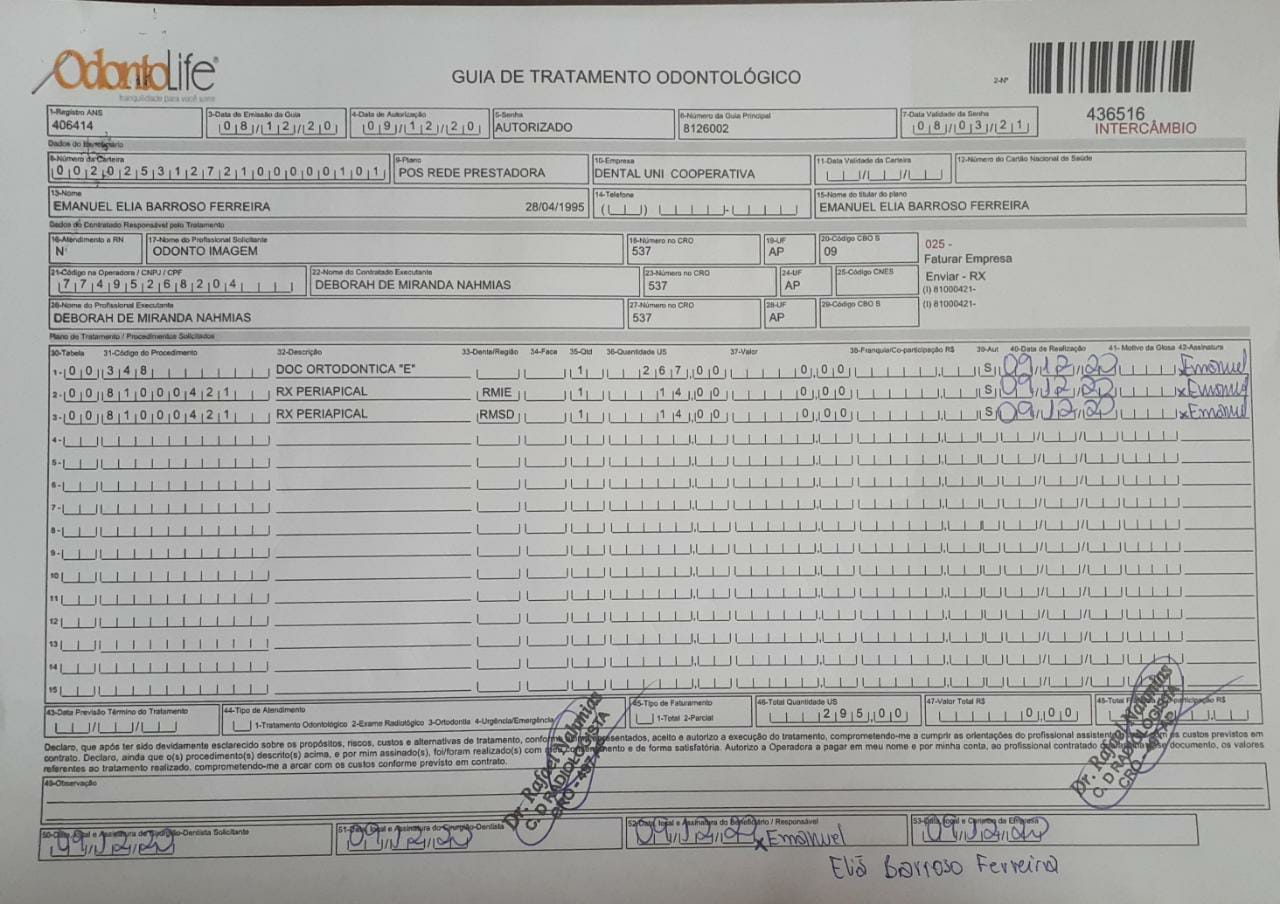 OdontoLife®
tranquilidade para você sorrir
GUIA DE TRATAMENTO ODONTOLÓGICO
2-Nº
436516
INTERCÂMBIO
1-Registro ANS 3-Data de Emissão da Guia 4-Data de Autorização 5-Senha 6-Número da Guia Principal 7-Data Validade da Senha
406414 08/12/20 09/12/20 AUTORIZADO 8126002 08/03/21
Dados do Beneficiário
8-Número da Carteira 9-Plano 10-Empresa 11-Data Validade da Carteira 12-Número do Cartão Nacional de Saúde
00202531272100000101 POS REDE PRESTADORA DENTAL UNI COOPERATIVA
13-Nome 14-Telefone 15-Nome do titular do plano
EMANUEL ELIA BARROSO FERREIRA 28/04/1995 EMANUEL ELIA BARROSO FERREIRA
Dados do Contratado Responsável pelo Tratamento
16-Atendimento a RN 17-Nome do Profissional Solicitante 18-Número no CRO 19-UF 20-Código CBO S
N ODONTO IMAGEM 537 AP 09
025 -
Faturar Empresa
Enviar - RX
(I) 81000421-
(I) 81000421-
21-Código na Operadora / CNPJ / CPF 22-Nome do Contratado Executante 23-Número no CRO 24-UF 25-Código CNES
77495268204 DEBORAH DE MIRANDA NAHMIAS 537 AP
26-Nome do Profissional Executante 27-Número no CRO 28-UF 29-Código CBO S
DEBORAH DE MIRANDA NAHMIAS 537 AP
Plano de Tratamento / Procedimentos Solicitados
30-Tabela 31-Código do Procedimento 32-Descrição 33-Dente/Região 34-Face 35-Qtd 36-Quantidade US 37-Valor 38-Franquia/Co-participação R$ 39-Aut 40-Data de Realização 41- Motivo da Glosa 42-Assinatura
1- 00 348 DOC ORTODONTICA "E" 1 267,00 0,00 S 09/12/20 xEmanuel
2- 00 81000421 RX PERIAPICAL RMIE 1 14,00 0,00 S 09/12/20 xEmanuel
3- 00 81000421 RX PERIAPICAL RMSD 1 14,00 0,00 S 09/12/20 xEmanuel
4-
5-
6-
7-
8-
9-
10
11
12
13
14
15
43-Data Previsão Término do Tratamento 44-Tipo de Atendimento 45-Tipo de Faturamento 46-Total Quantidade US 47-Valor Total R$ 48-Total
1-Tratamento Odontológico 2-Exame Radiológico 3-Ortodontia 4-Urgência/Emergência 1-Total 2-Parcial 295,00 0,00
Declaro, que após ter sido devidamente esclarecido sobre os propósitos, riscos, custos e alternativas de tratamento, conforme apresentados, aceito e autorizo a execução do tratamento, comprometendo-me a cumprir as orientações do profissional assistente custos previstos em
contrato. Declaro, ainda que o(s) procedimento(s) descrito(s) acima, e por mim assinado(s), foi/foram realizado(s) com meu consentimento e de forma satisfatória. Autorizo a Operadora a pagar em meu nome e por minha conta, ao profissional contratado documento, os valores
referentes ao tratamento realizado, comprometendo-me a arcar com os custos conforme previsto em contrato.
49-Observação
Dr. Rafael Nahmias
C. D RADIOLOGISTA
Dr. Rafael Nahmias
C. D RADIOLOGISTA
50-Data, local e Assinatura do Cirurgião-Dentista Solicitante 51-Data, local e Assinatura do Cirurgião-Dentista 52-Data, local e Assinatura do Beneficiário / Responsável 53-Data, local e Carimbo da Empresa
09/12/20 09/12/20 09/12/20 xEmanuel 09/12/20
Eliã Barroso Ferreira